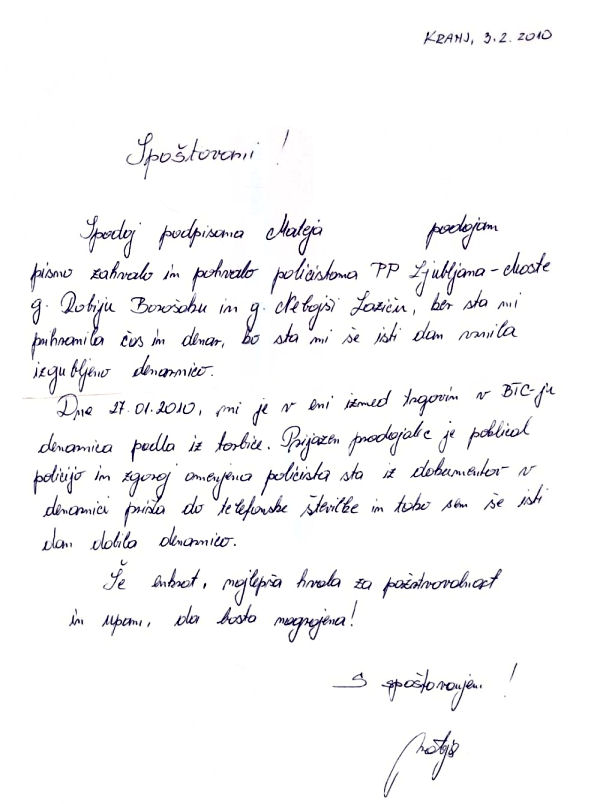 KRANJ, 3.2.2010
Spoštovani!
Spodaj podpisana Mateja podajam
pisno zahvalo in pohvalo policistoma PP Ljubljana-Moste
g. Robiju Borošaku in g. Nebojši Laziću, ker sta mi
prihranila čas in denar, ko sta mi še isti dan vrnila
izgubljeno denarnico.
Dne 27.01.2010, mi je v eni izmed trgovin v BTC-ju
denarnica padla iz torbice. Prijazen prodajalec je poklical
policijo in zgoraj omenjena policista sta iz dokumentov v
denarnici prišla do telefonske številke in tako sem še isti
dan dobila denarnico.
Še enkrat, najlepša hvala za požrtvovalnost
in upam, da bosta nagrajena!
S spoštovanjem!
Mateja